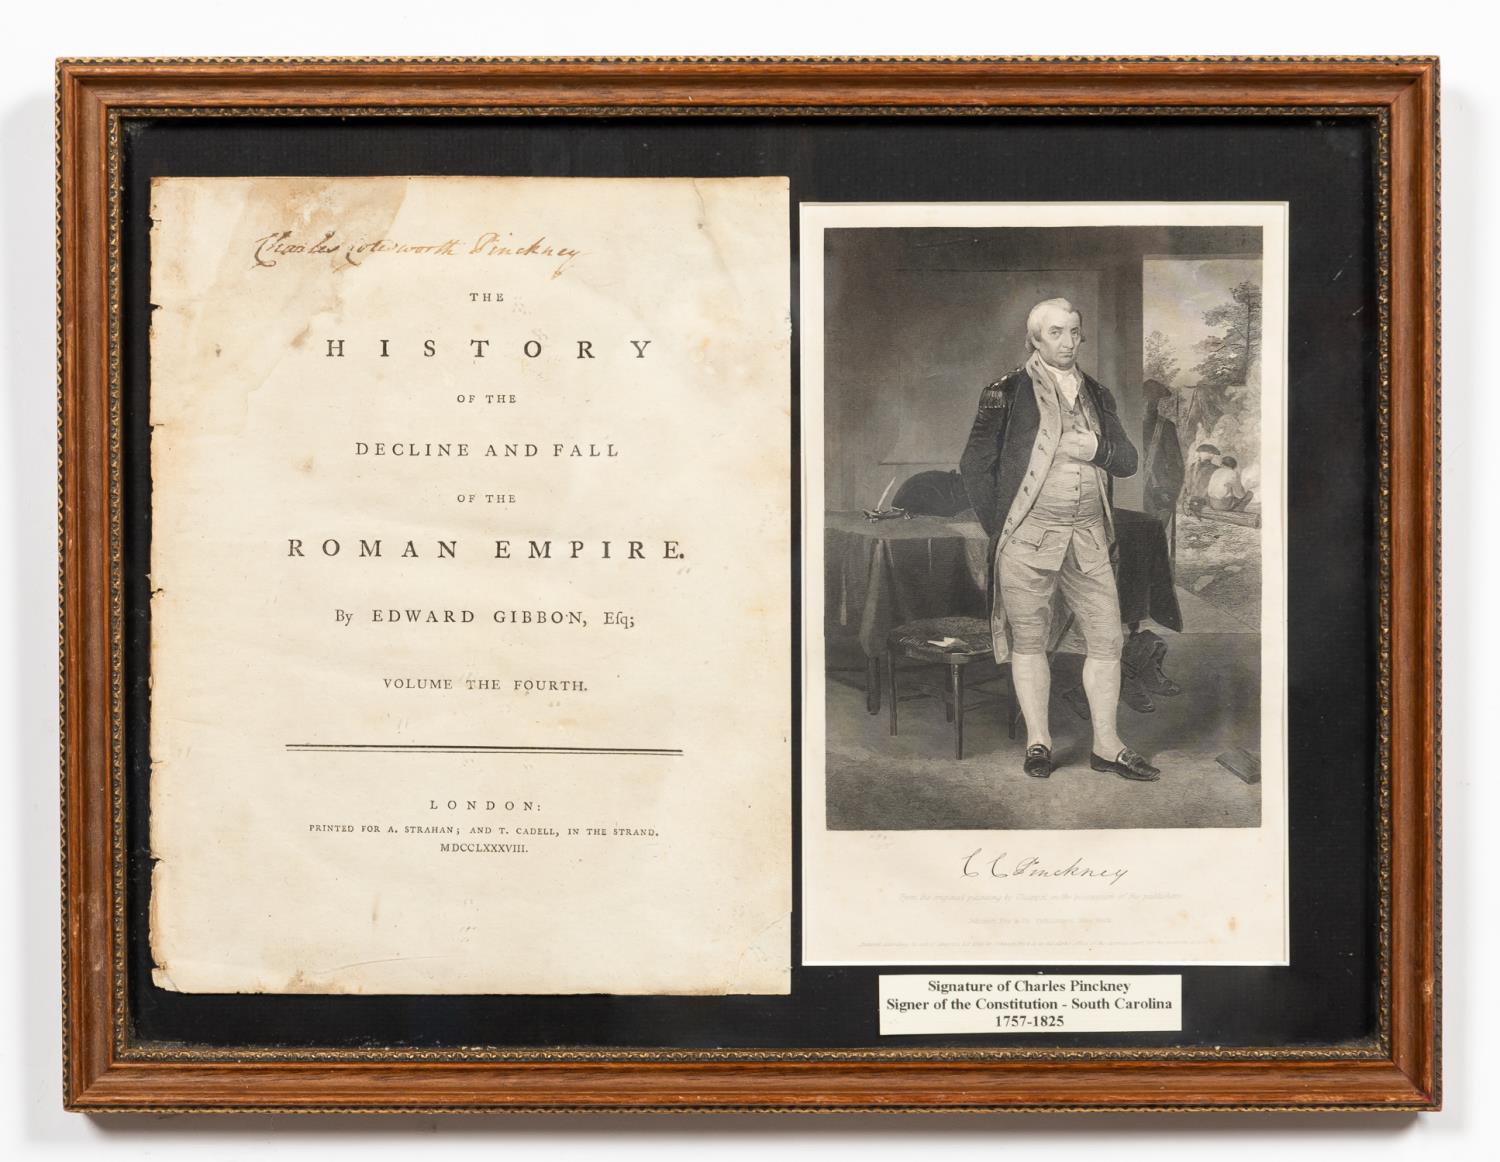 Charles Cotesworth Pinckney
THE
HISTORY
OF THE
DECLINE AND FALL
OF THE
ROMAN EMPIRE.
By EDWARD GIBBON, Eſq;
VOLUME THE FOURTH.
LONDON:
PRINTED FOR A. STRAHAN; AND T. CADELL, IN THE STRAND.
MDCCLXXXVIII.
C C Pinckney
From the original painting by Chappel in the possession of the publishers
Signature of Charles Pinckney
Signer of the Constitution - South Carolina
1757-1825